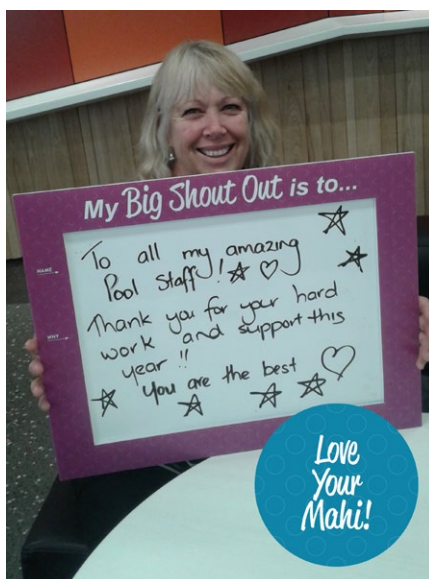 My Big Shout Out is to...
NAME
To all my amazing
Pool Staff!
WHY
Thank you for your hard
work and support this
year!!
You are the best
Love
Your
Mahi!